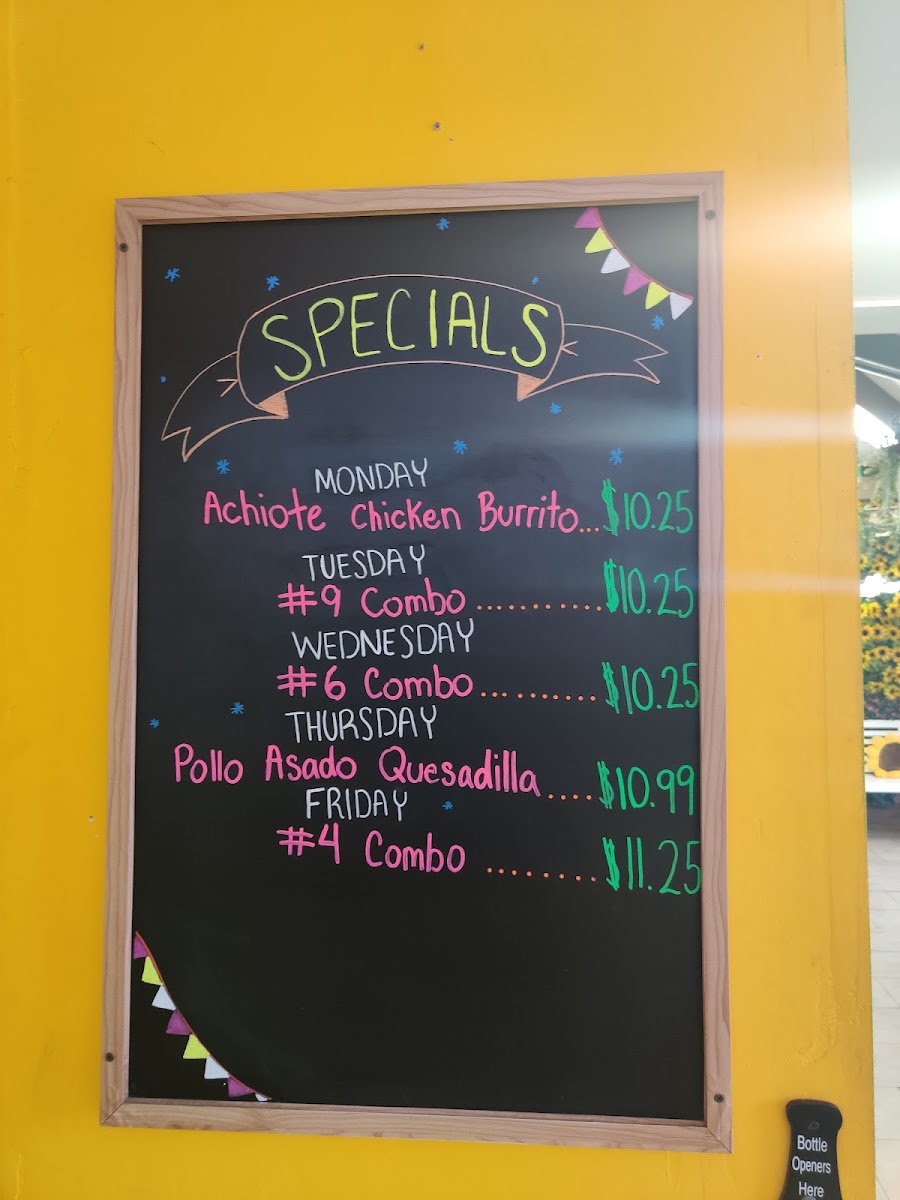 SPECIALS
MONDAY
Achiote Chicken Burrito...$10.25
TUESDAY
#9 Combo ...........$10.25
WEDNESDAY
#6 Combo ..........$10.25
THURSDAY
Pollo Asado Quesadilla ....$10.99
FRIDAY
#4 Combo .........$11.25
Bottle
Openers
Here